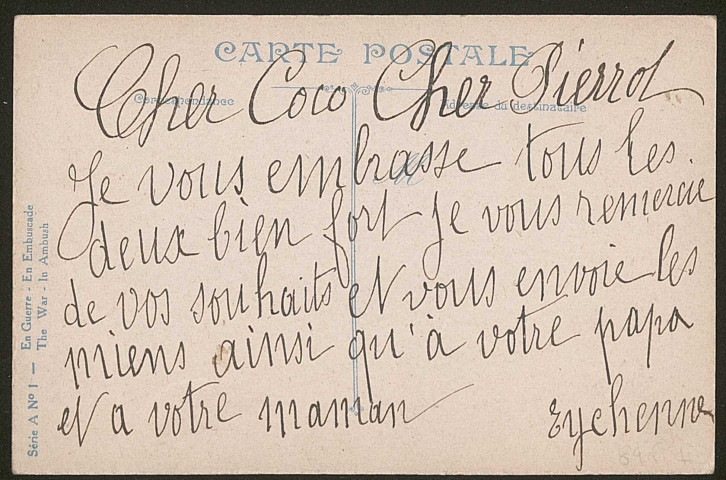 CARTE POSTALE
Correspondance
Adresse du destinataire
Cher Coco Cher Pierrot
Je vous embrasse tous les
deux bien fort je vous remercie
de vos souhaits et vous envoie les
miens ainsi qu'à votre papa
et a votre maman
Eychenne
Série A Nº 1 — En Guerre - En Embuscade
The War - In Ambush